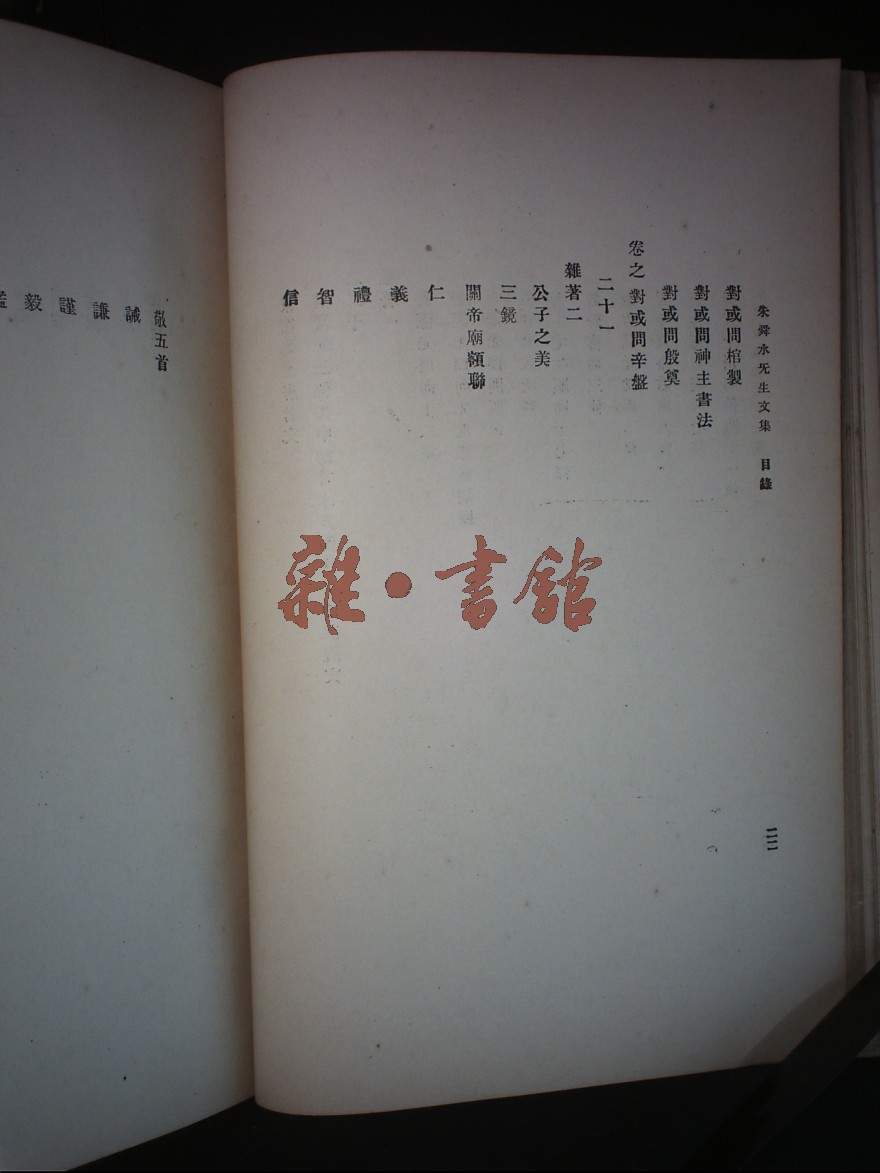 朱舜水先生文集 目錄
對或問棺製
對或問神主書法
對或問殷奠
卷之 對或問辛盤
二十一
雜著二
公子之美
三鏡
關帝廟額聯
仁
義
禮
智
信
二二
雜·書館
敬五首
誠
謙
謹
毅